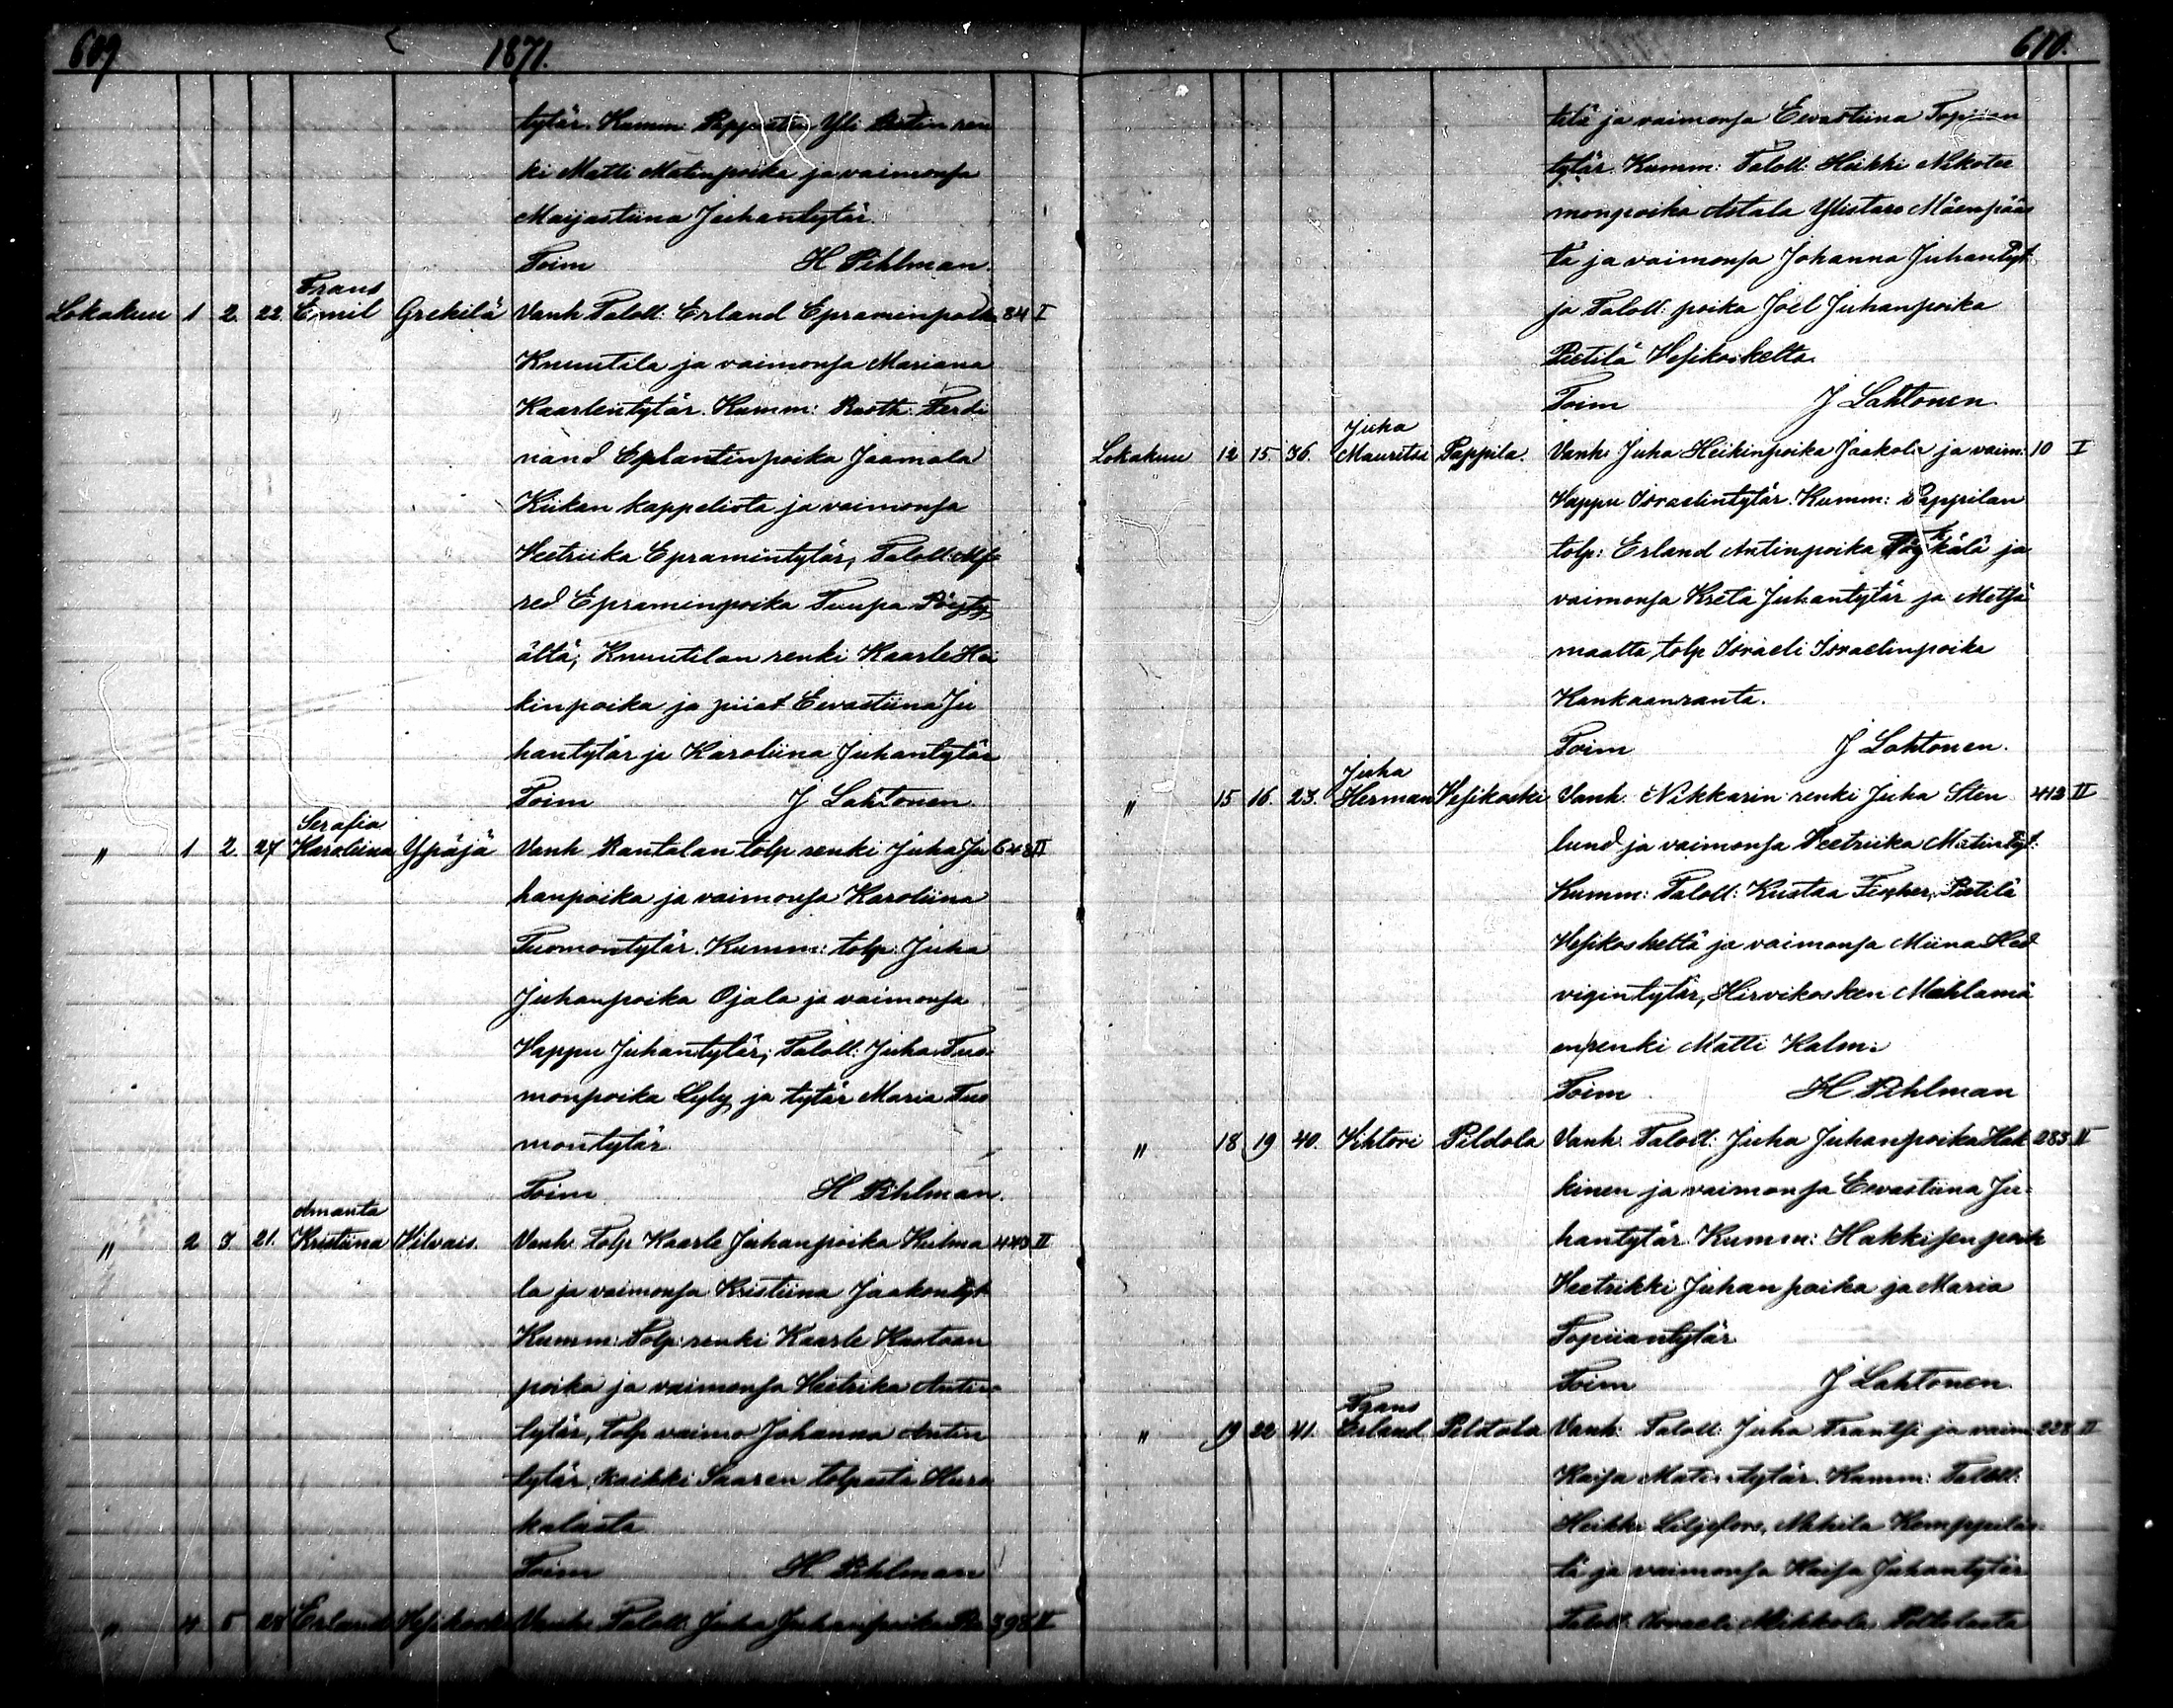 609 1871.
tytär. Kumm: Yli ren
ki Matti Matinpoika ja vaimonsa
Maijastiina Juhantytär.
Toim H Pihlman.
Frans
Lokakuu 1 2. 22. Emil Grekilä Vanh. Taloll: Erland Epraminpoika 84 I
Knuutila ja vaimonsa Mariana
Kaarlentytär. Kumm: Rusth: Ferdi
nand Eplantinpoika Jaamala
Kiikan kappelista ja vaimonsa
Veetriika Epramintytär, Taloll: Alf
red Epraminpoika Tuupa Pöyty
ältä; Knuutilan renki Kaarle Hei
kinpoika ja piiat Eevastiina Ju
hantytär ja Karoliina Juhantytär
Toim J Lahtonen.
Serafia
" 1 2. 27 Karoliina Ypäjä Vanh Rantalan tolp renki Juha Ju 648 II
hanpoika ja vaimonsa Karoliina
Tuomontytär. Kumm: tolp: Juha
Juhanpoika Ojala ja vaimonsa
Vappu Juhantytär; Taloll: Juha Tuo
monpoika Lyly ja tytär Maria Tuo
montytär
Toim H Pihlman.
Amanta
" 2 3. 21. Kristiina Vilvais. Vanh. Tolp Kaarle Juhanpoika Kulma 443 II
la ja vaimonsa Kristiina Jaakontyt
Kumm: Tolp: renki Kaarle Kustaan
poika ja vaimonsa Veetrika Antin
tytär, tolp vaimo Johanna Antin
tytär, kaikki Saaren tolpasta Hure
kalasta
Toim H Pihlman
" 4 5 28 Erland Vesikoski Vanh. Taloll: Juha Juhanpoika 398 II
610.
tilä ja vaimonsa Eevastiina Topiian
tytär. Kumm: Taloll: Heikki Nikote
monpoika Astala Ylistaro Mäenpääs
tä ja vaimonsa Johanna Juhantyt
ja Taloll: poika Joel Juhanpoika
Pietilä Vesikoskelta.
Toim J Lahtonen.
Juha
Lokakuu 12 15 36. Mauritsi Pappila. Vanh: Juha Heikinpoika Jaakola ja vaim: 10 I
Vappu Israelintytär. Kumm: Pappilan
tolp: Erland Antinpoika ja
vaimonsa Kreta Juhantytär ja Metsä
maalta tolp Israeli Israelinpoika
Kankaanranta.
Toim J Lahtonen.
Juha
" 15 16 23. Herman Vesikoski Vanh. Nikkarin renki Juha Sten 412 II
lund ja vaimonsa Veetriika Matintyt:
Kumm: Taloll: Kustaa Fischer, Pietilä
Vesikoskelta ja vaimonsa Miina Hed
vigintytär, Hirvikosken Mahlamä
en renki Matti Kalm.
Toim H Pihlman
" 18 19 40. Vihtori Pildola Vanh. Taloll: Juha Juhanpoika Hak 283 II
kinen ja vaimonsa Eevastiina Ju
hantytär. Kumm: Hakkisen poik
Veetrikki Juhanpoika ja Maria
Topiiantytär
Toim J Lahtonen.
Frans
" 19 22 41. Erland Peldola Vanh: Taloll: Juha Frantsi ja vaim 228 II
Kaisa Matintytär. Kumm: Taloll:
Heikki Liljefors, Mikila Kamppilas
ta ja vaimonsa Kaisa Juhantytär
Taloll: Israeli Mikkola Poltolasta